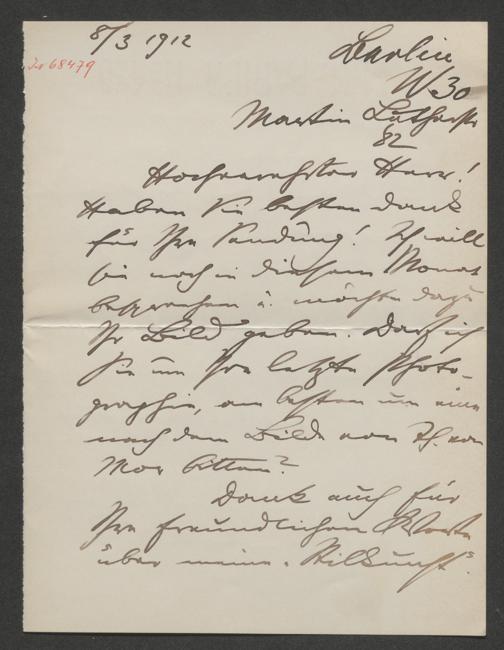 8/3 1912
J.N 68479
Berlin
W. 30
Martin Lutherstr
82
Hochverehrter Herr!
Haben Sie besten Dank
für Ihre Sendung! Ich will
sie noch in diesem Monat
besprechen u. möchte dazu
Ihr Bild geben. Darf ich
Sie um Ihre letzte Photo-
graphie, am besten um eine
nach dem Bilde von Th. von
Mor bitten?
Dank auch für
Ihre freundlichen Worte
über meine "Stilkunst".